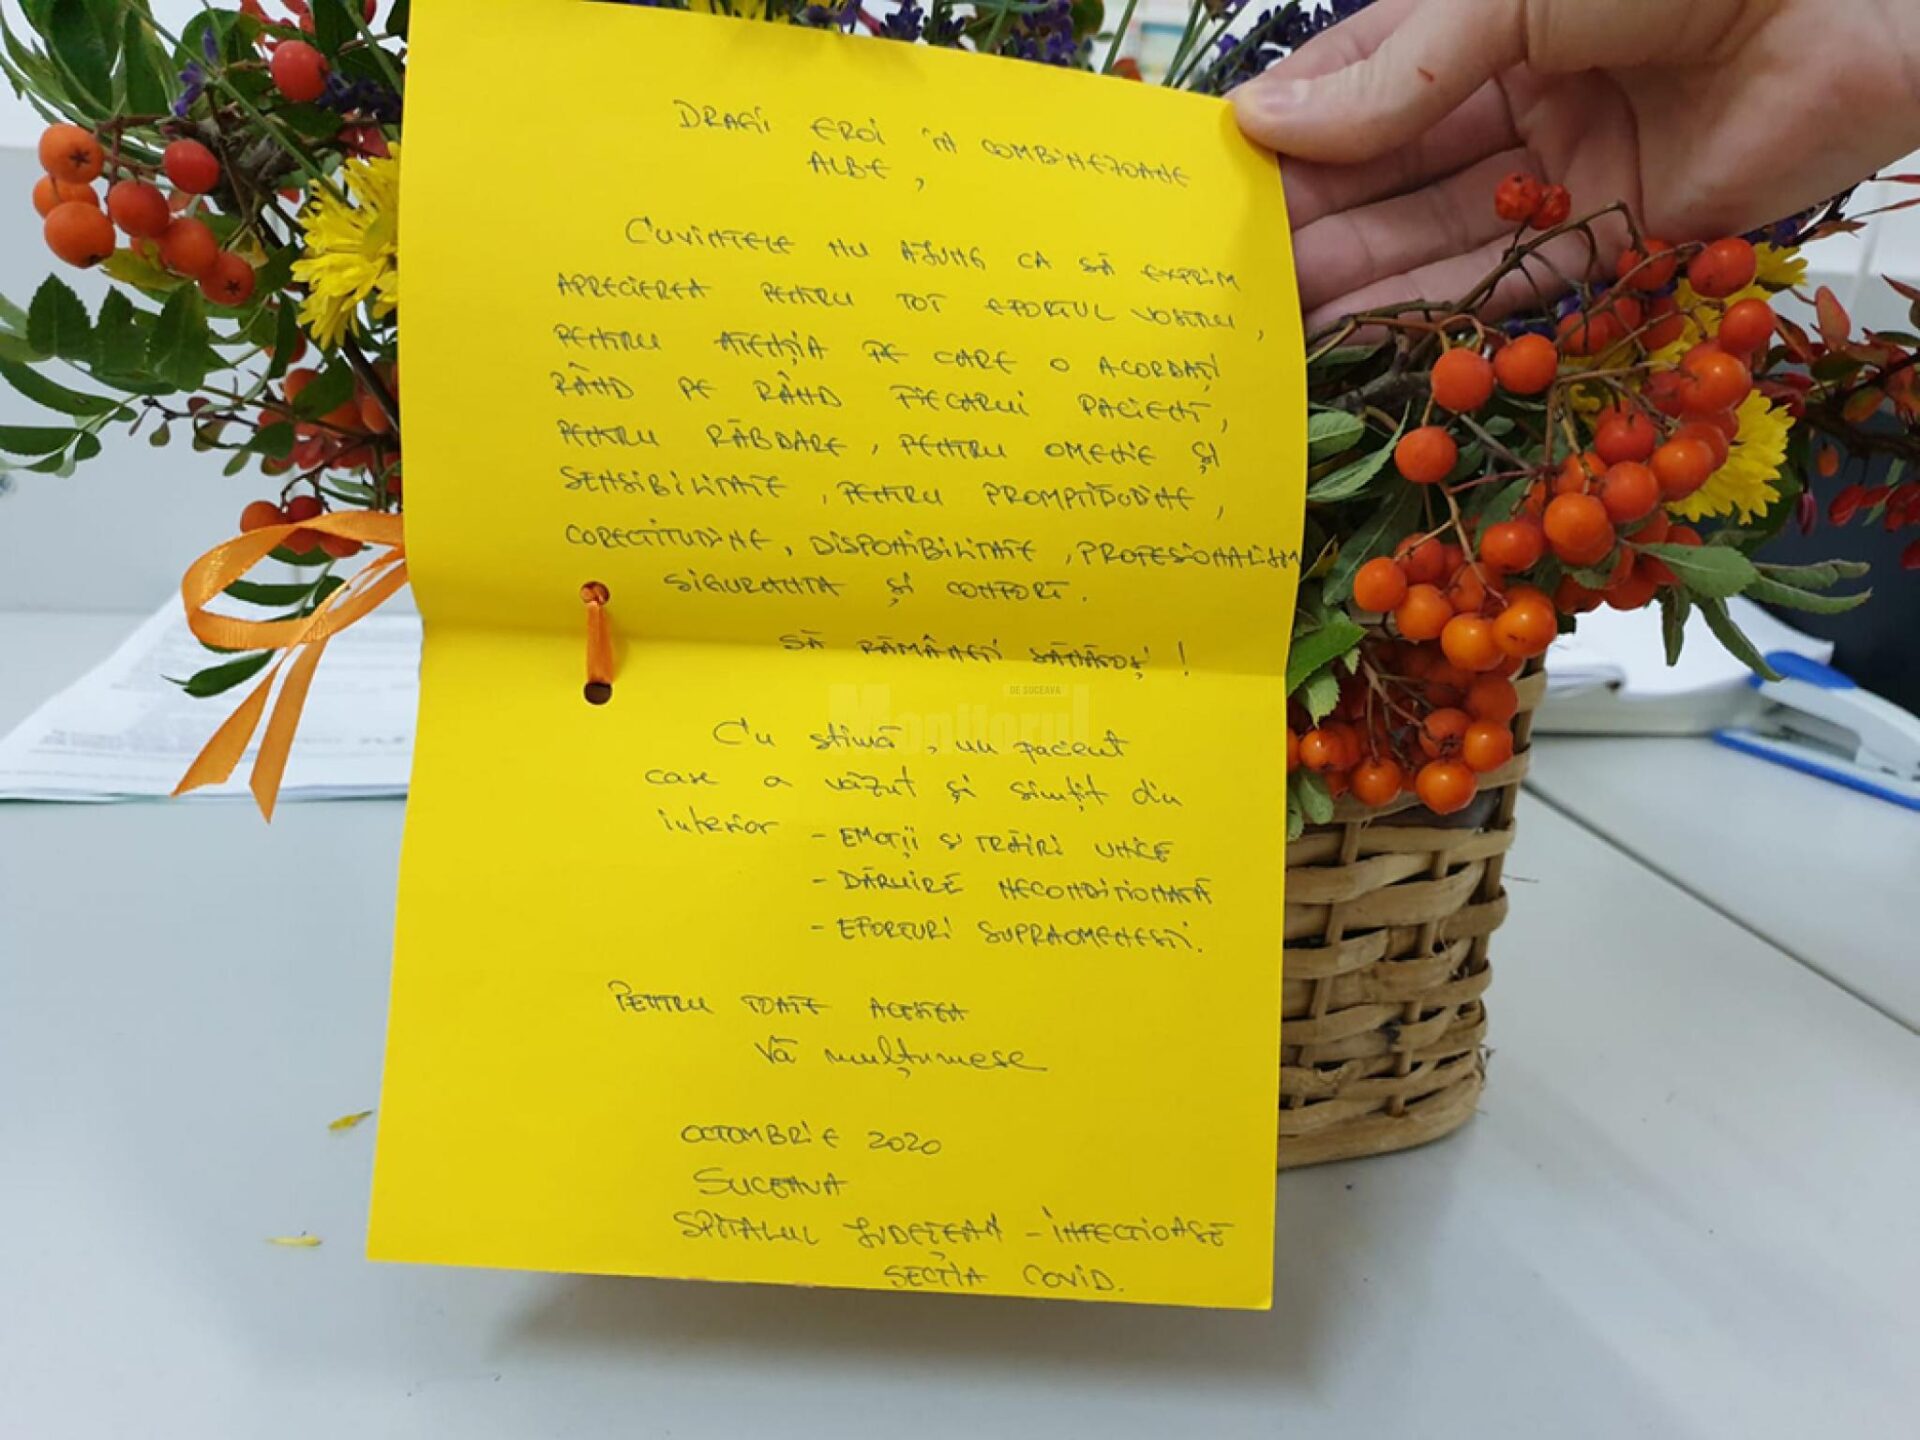 DRAGII EROI ÎN COMBINEZOANE
ALBE,
CUVINTELE NU AJUNG CA SĂ EXPRIM
APRECIEREA PENTRU TOT EFORTUL VOSTRU,
PENTRU ATENȚIA PE CARE O ACORDAȚI
RÂND PE RÂND FIECĂRUI PACIENT,
PENTRU RĂBDARE, PENTRU OMENIE ȘI
SENSIBILITATE, PENTRU PROMPTITUDINE,
CORECTITUDINE, DISPONIBILITATE, PROFESIONALISM
SIGURANTA ȘI CONFORT.
SĂ RĂMÂNEȚI SĂNĂTOȘI!
DE SUCEAVA
Monitorul
Cu stimă, un pacient
care a văzut și simțit din
interior - EMOȚII SI TRĂIRI UNICE
- DĂRUIRE NECONDITIONATĂ
- EFORTURI SUPRAOMENESTI.
PENTRU TOATE ACESTEA
Vă mulțumesc
OCTOMBRIE 2020
SUCEAVA
SPITALUL JUDEȚEAN - INFECTIOASE
SECTIA COVID.